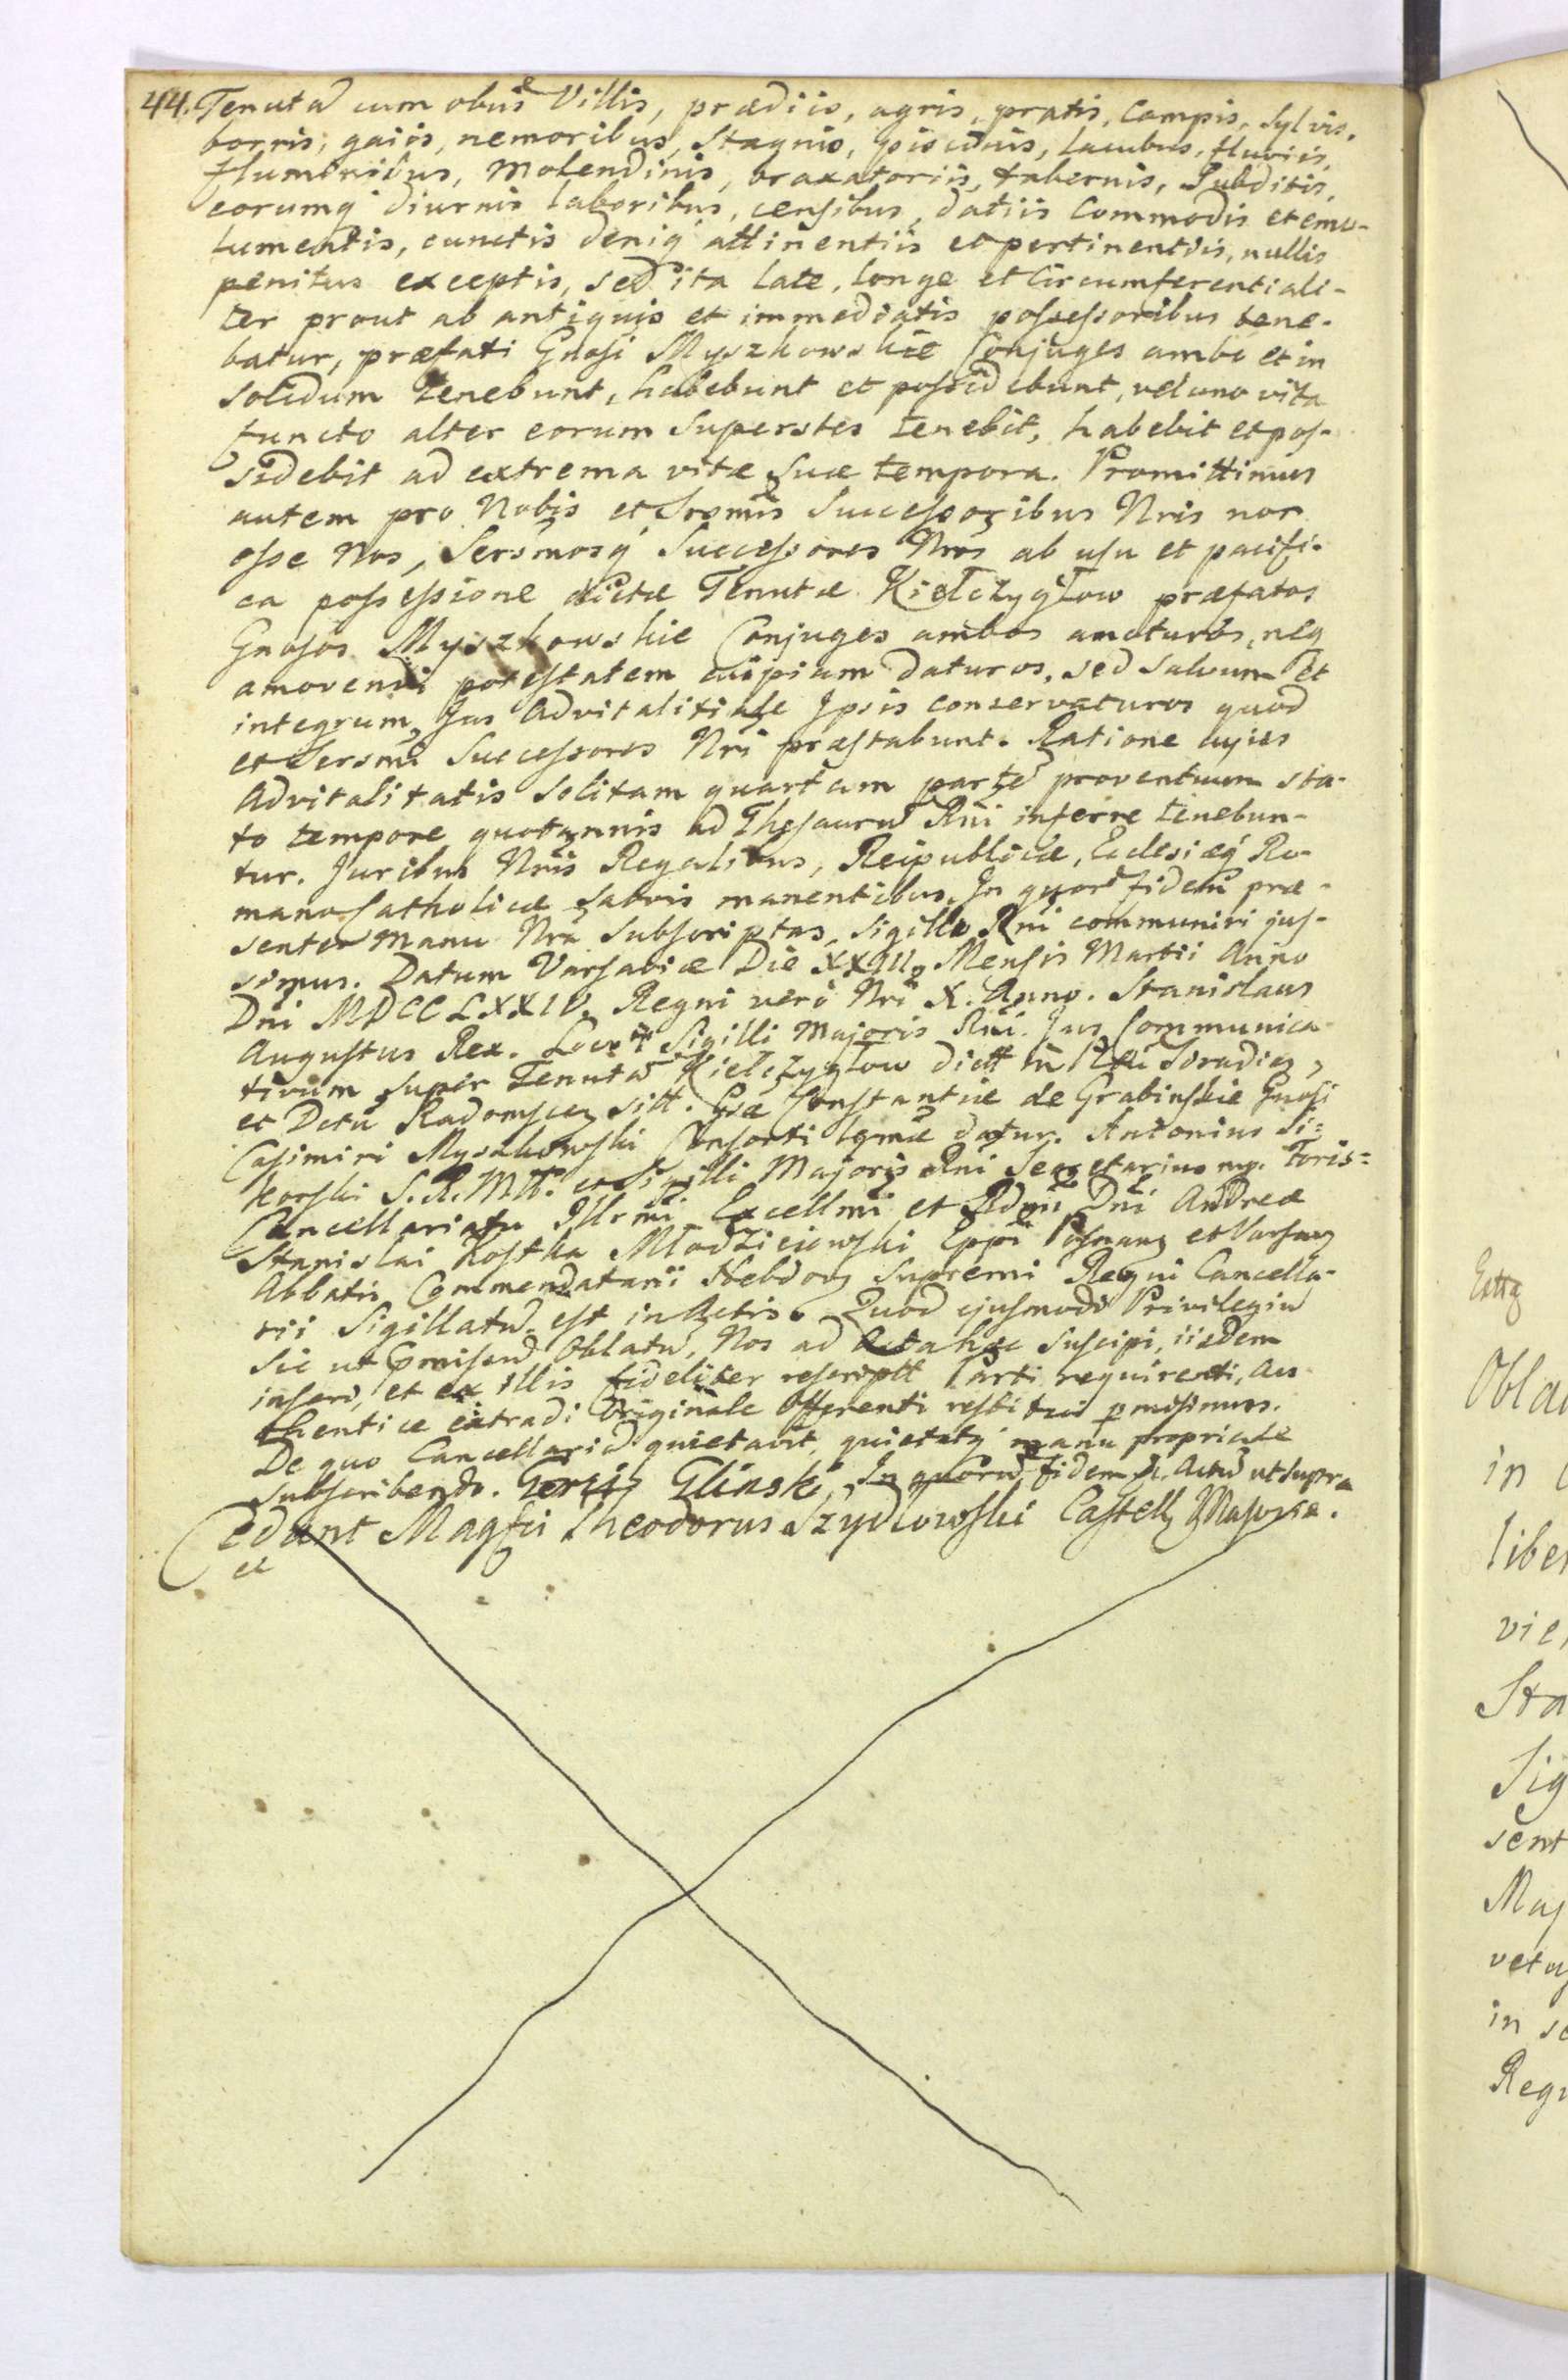 44. Tenutã cum oĩbus Villis, prædiis, agris, pratis, Campis, Sylvis,
borris, gaiis, nemoribus, Stagnis, piscinis, lacubus, fluviis,
fluminibus, Molendinis, braxatoriis, tabernis, Subditis,
eorumq́ diurnis laboribus, censibus, datiis Commodis et emo-
lumentis, cunctis deniq́ attinentiis et pertinentiis, nullis
penitus exceptis, sed ita late, longe et Circumferentiali-
ter prout ab antiquis et immediatis possessoribus tene-
batur, præfati Gnosi Myszkowskie Conjuges ambo et in
solidum tenebunt, habebunt et possidebunt, vel uno vita
functo alter eorum Superstes tenebit, habebit et pos-
sidebit ad extrema vitæ Suæ tempora. Promittimus
autem pro Nobis et Srsmis Successoribus Nris non
esse Nos, Sersmosq́ Successores Nros ab usu et pacifi-
ca possessione dictæ Tenutæ Kiełczygłow præfatos
Gnosos Myszkowskie Conjuges ambos amoturos, neq
amovendi potestatem cuipiam daturos, sed Salvum et
integrum Jus Advitalitiale Ipsis conservaturos quod
et Sersmi Successores Nri præstabunt. Ratione cujus
Advitalitatis Solitam quartam partẽ proventuum sta-
to tempore quotannis ad Thesaurũ Rni inferre tenebun-
tur. Juribus Nris Regalibus, Reipublicæ, Eclesiæq́ Ro-
mano Catholicæ Salvis manentibus. In quorũ fidem præ-
sentes Manu Nra Subscriptas, Sigillo Rni communiri jus-
simus. Datum Varsaviæ Die XXIII Mensis Martii Anno
Dni MDCCLXXIV. Regni vero Nri X. Anno. Stanislaus
Augustus Rex. Sigilli Majoris Rni. Jus Communica-
tivum Super Tenutã Kiełczygłow dictt in
et Radomscez sitt. Gsæ Constantiæ de Grabinskie Gnosi
Casimiri Myszkowski Consorti lgmæ datur. Antonius Si=
korski S. R. Mtt. et Sigilli Majoris Rni Secretarius mp.
Cancellariatu Illrmi Excellmi et Rdmi Dni Andreæ
Stanislai Kostka Młodzieiowski Eppi Posnanz et Varsavz
Abbatis Commendatarii Hebdovz Supremi Regni Cancella-
rii Sigillatũ est in Actis. Quod ejusmodi Privilegiũ
Sic ut Oblatũ, Nos ad Acta hæc Suscipi, iisdem
inseri, et ex illis fideliter rescriptt Parti requirenti, Au-
thentice extradi Originale Offerenti restitui pmisimus.
De quo Cancellariã quietavit, quietatq́ manu propria Se
Subscribendo. Glinski, In quorũ fidem Actũ ut supra
Cedunt Magfci Theodorus Szydłowski Castell Masoviæ.
et
Extrz
Obla
in
libe
vie
Sta
Sig
sent
Maj
vet
in se
Reg